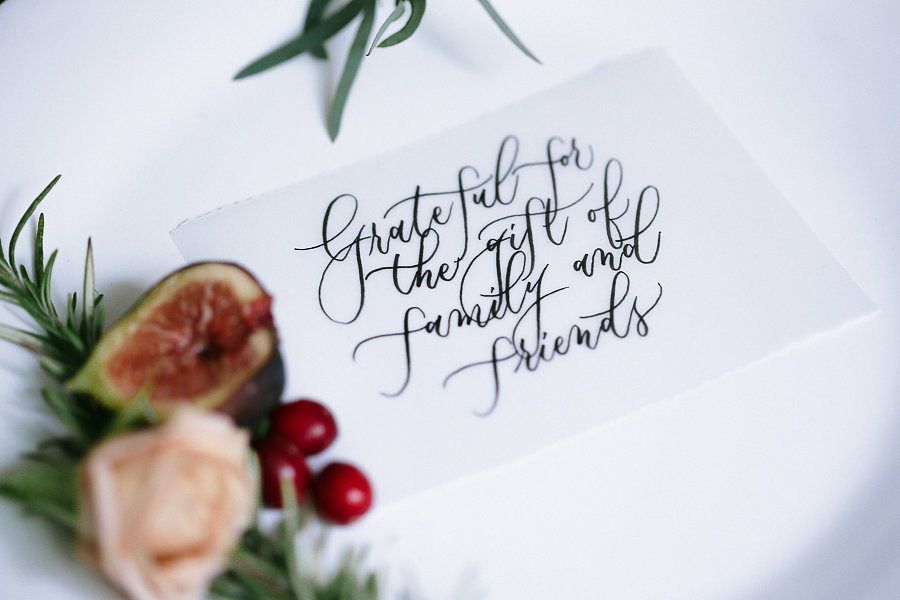 Grateful for
the gift of
family and
friends